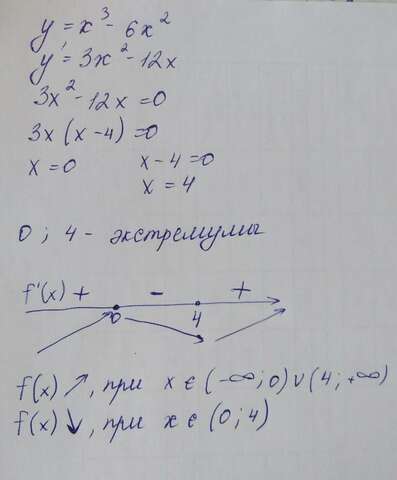 y = x³ - 6x²
y' = 3x² - 12x
3x² - 12x = 0
3x(x - 4) = 0
x = 0    x - 4 = 0
x = 4
0 ; 4 - экстремумы
f'(x) + - +
0 4
f(x) ↗, при x ∈ (-∞; 0) ∪ (4; +∞)
f(x) ↓, при x ∈ (0; 4)